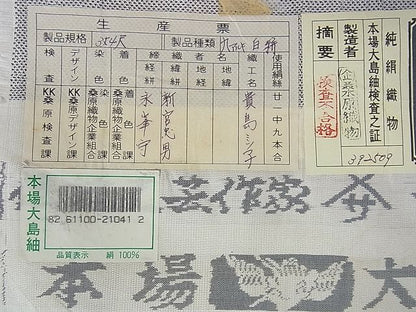 生産票
製品規格
製品種類
使用絹絲
検査
KK桑原検査課
デザイン
KKデザイン課
染色
桑原織物企業組合
着色
桑原織物企業組合
締経絣
永峯守
織緯絣
新宮兄男
名地緯
織工名
貴島ミシ子
廿一中九本合
純絹織物
本場大島紬検査之証
製造者
企業桑原織物
摘要
検査不合格
392509
本場大島紬
82 61100-21041 2
品質表示 絹 100%
芸作家
本場
大